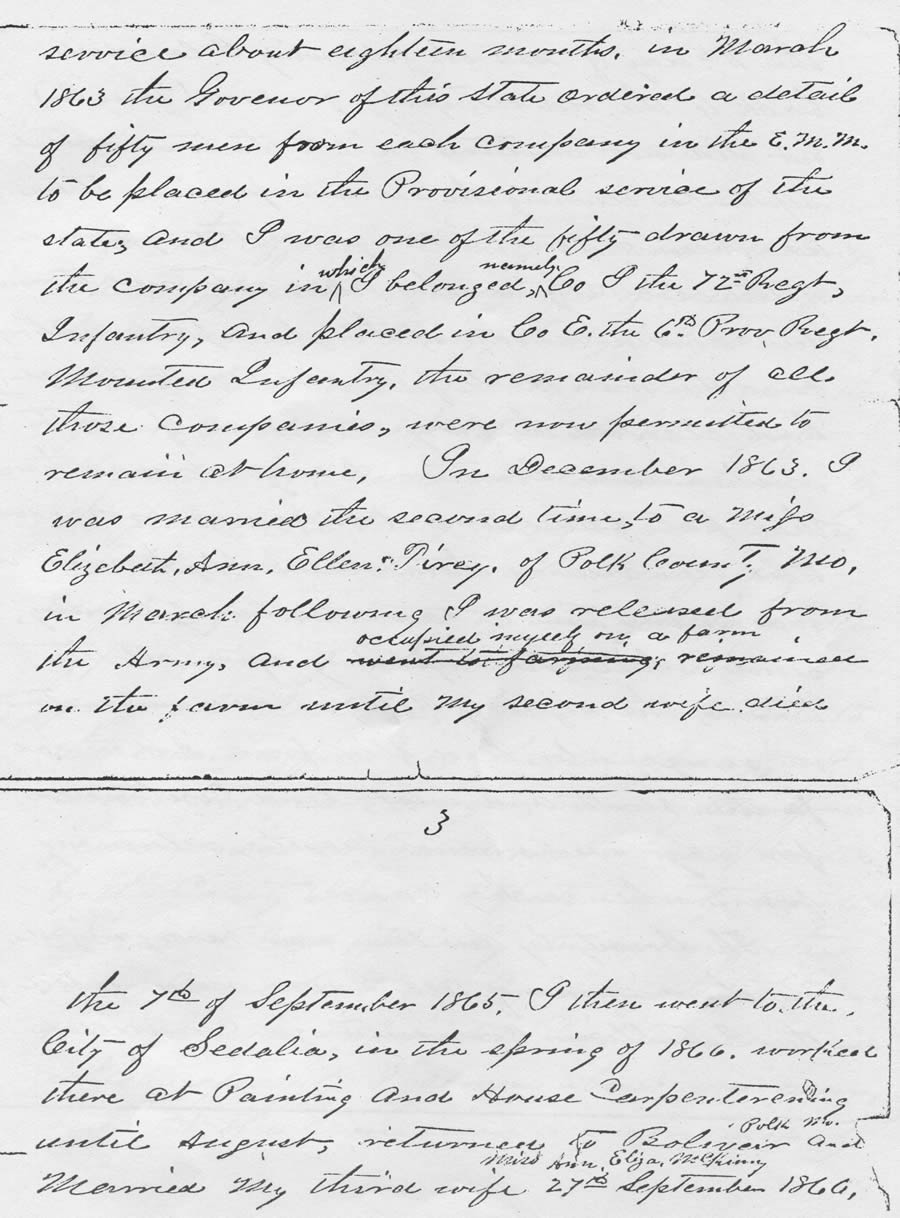 service about eighteen months. in March
1863 the Govenor of this state ordered a detail
of fifty men from each company in the E.M.M.
to be placed in the Provisional service of the
state, and I was one of the fifty drawn from
which namely
the company in I belonged, Co I the 72nd Regt,
Infantry, and placed in Co E. the 6th Prov. Regt.
Mounted Infantry, the remainder of all
those companies, were now permitted to
remain at home, In December 1863. I
was married the second time, to a Miss
Elizabeth, Ann, Ellen. Pirey. of Polk County Mo,
in March following I was released from
occupied myself on a farm
the Army, and went to farming, remained
on the farm until my second wife died
3
the 7th of September 1865. I then went to the
City of Sedalia, in the spring of 1866. worked
there at Painting and House Carpentering
Polk Mo.
until August, returned to Boliveir and
Miss Ann. Eliza. McKinny
Married My third wife 27th September 1866,